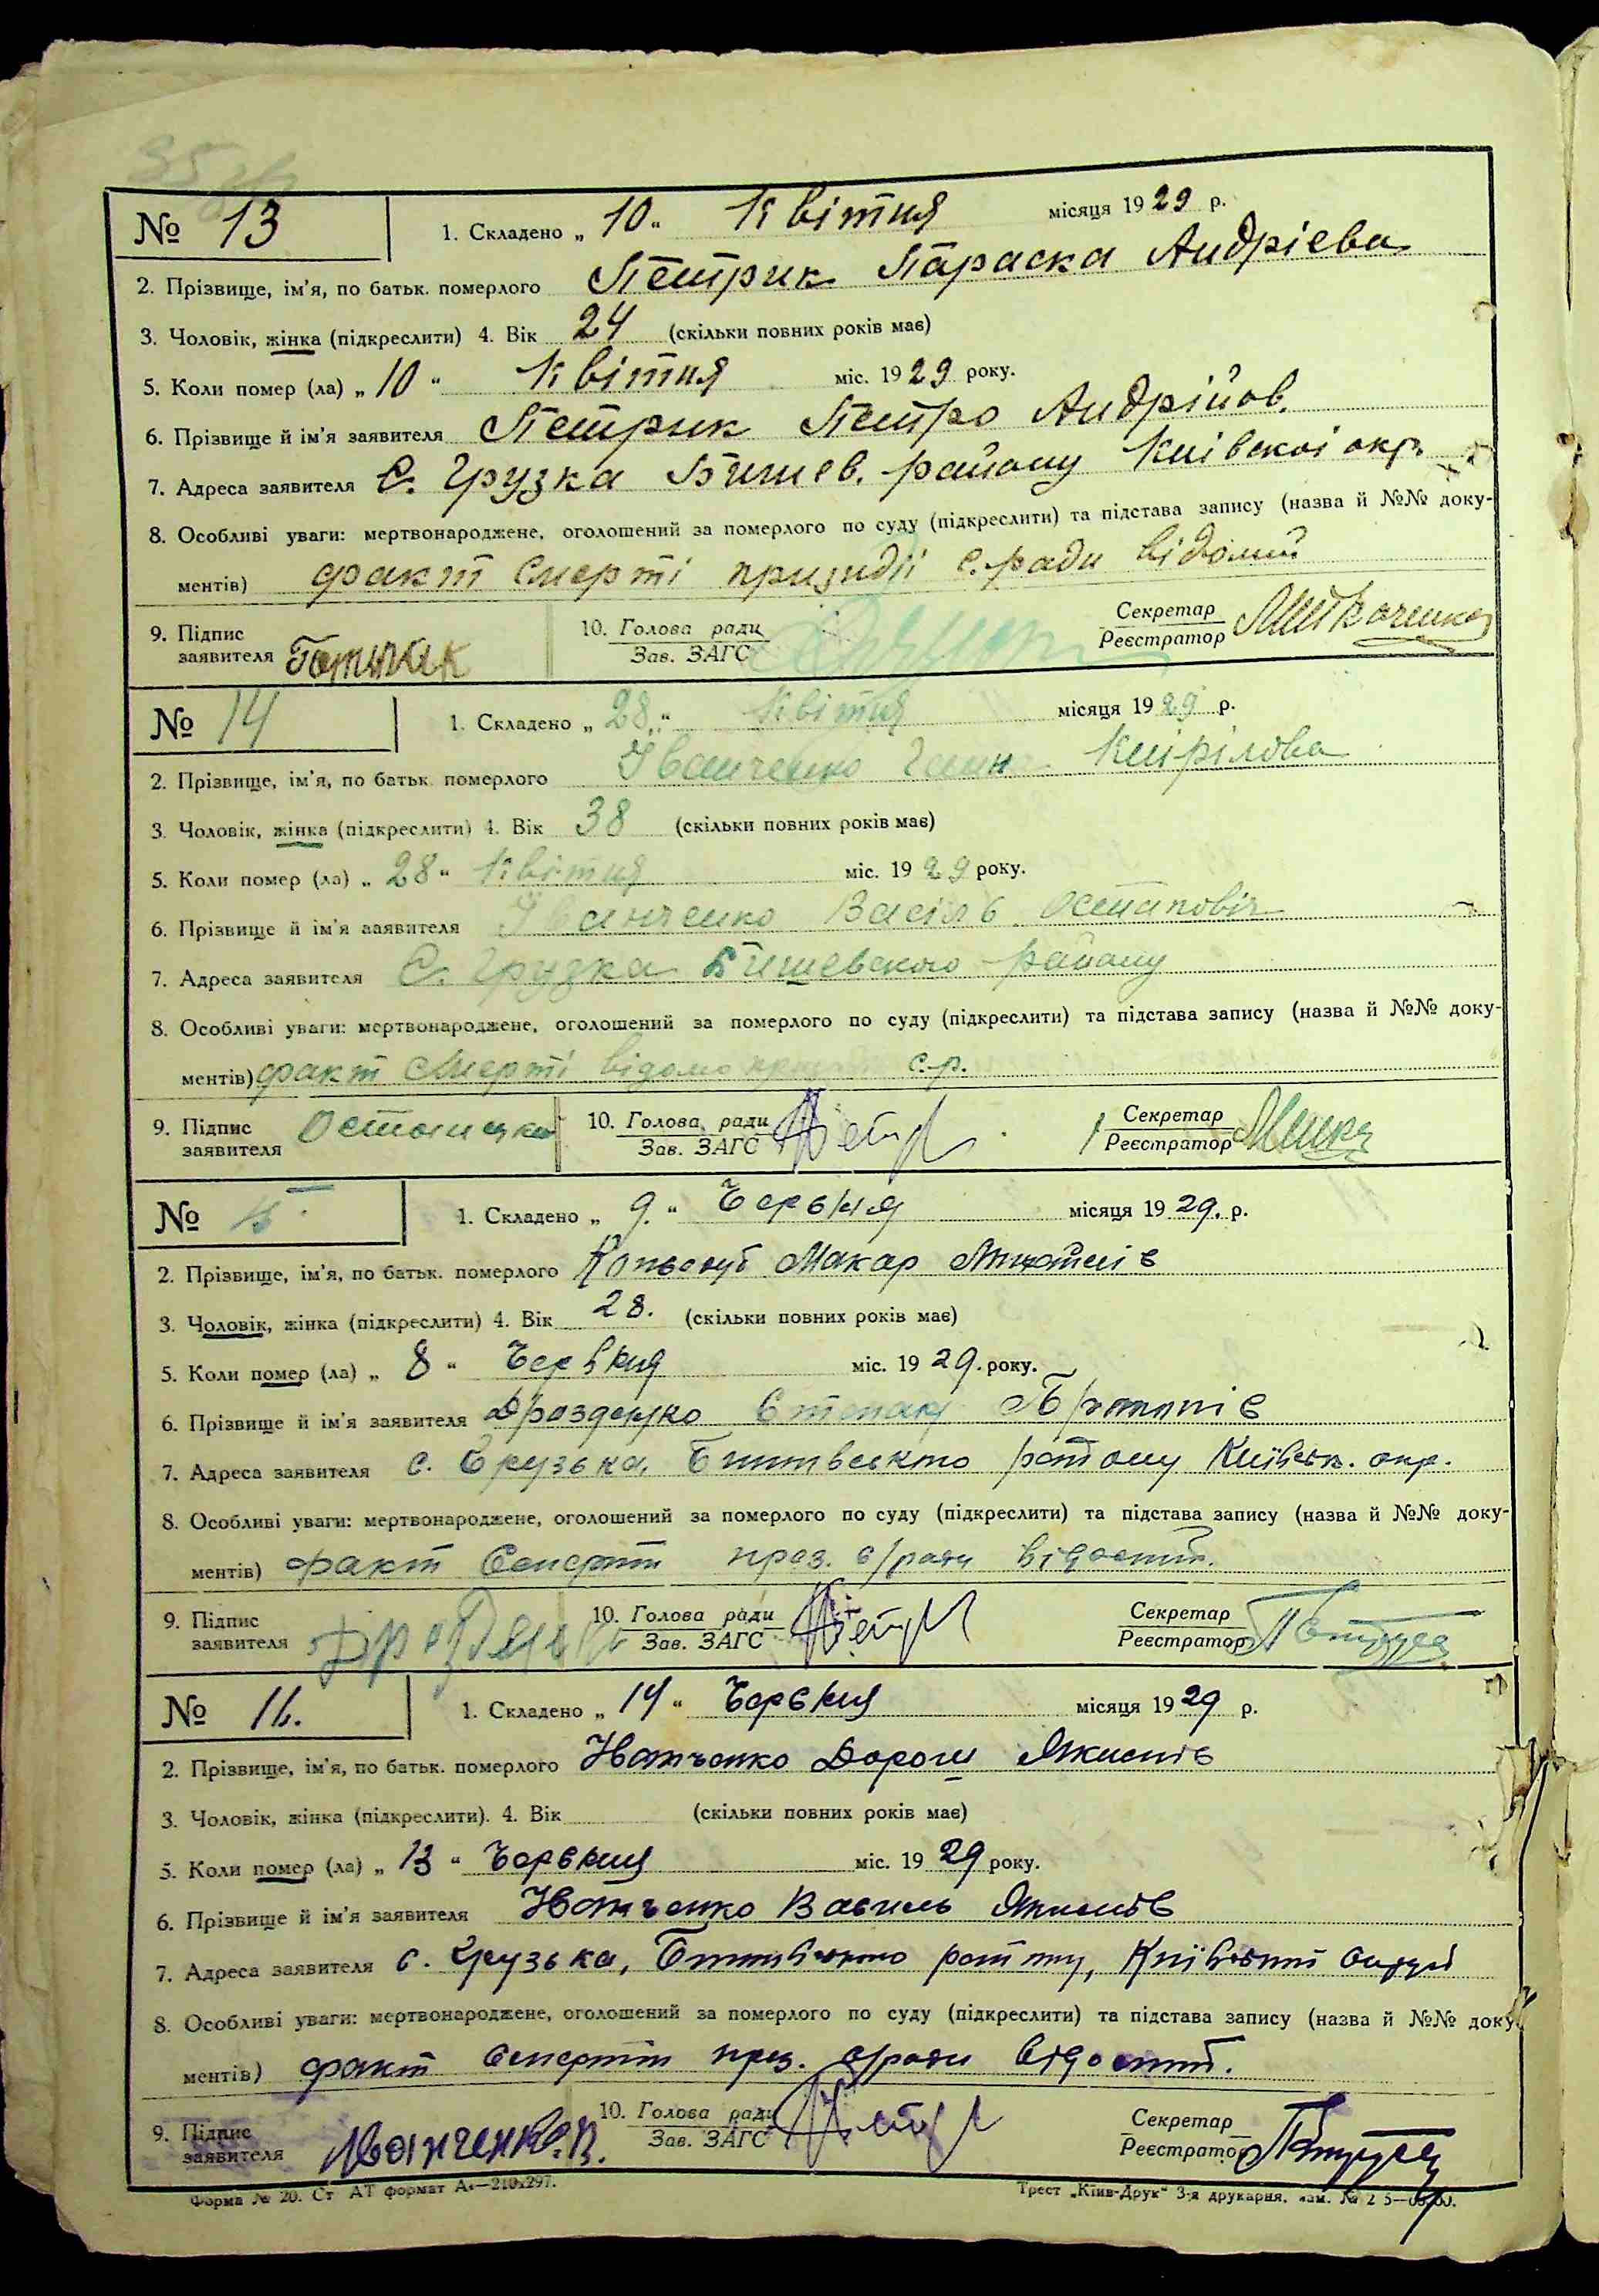 № 13
1. Складено „10“ Квітня місяця 1929 р.
2. Прізвище, ім'я, по батьк. померлого Петрик Параска Андрієва
3. Чоловік, жінка (підкреслити) 4. Вік 24 (скільки повних років має)
5. Коли помер (ла) „10“ Квітня міс. 1929 року.
6. Прізвище й ім'я заявителя Петрик Петро Андрійов.
7. Адреса заявителя С. Грузка Бишев. району Київскоі окр.
8. Особливі уваги: мертвонароджене, оголошений за померлого по суду (підкреслити) та підстава запису (назва й №№ доку-
ментів) факт смерті призидії с. ради відомий
9. Підпис заявителя
10. Голова ради
Зав. ЗАГС
Секретар
Реєстратор
№ 14
1. Складено „28“ Квітня місяця 1929 р.
2. Прізвище, ім'я, по батьк. померлого Іванченко Ганна Кирілова
3. Чоловік, жінка (підкреслити) 4. Вік 38 (скільки повних років має)
5. Коли помер (ла) „28“ Квітня міс. 1929 року.
6. Прізвище й ім'я заявителя Іванченко Васіль Остаповіч
7. Адреса заявителя С. Грузка Бишевского району
8. Особливі уваги: мертвонароджене, оголошений за померлого по суду (підкреслити) та підстава запису (назва й №№ доку-
ментів) факт смерті відомо с.р.
9. Підпис заявителя
10. Голова ради
Зав. ЗАГС
Секретар
Реєстратор
№ 15
1. Складено „9.“ Червня місяця 1929. р.
2. Прізвище, ім'я, по батьк. померлого Макар
3. Чоловік, жінка (підкреслити) 4. Вік 28. (скільки повних років має)
5. Коли помер (ла) „8“ Червня міс. 1929. року.
6. Прізвище й ім'я заявителя Дрозденко Степан
7. Адреса заявителя с. Грузька, Бишівського району Київськ. окр.
8. Особливі уваги: мертвонароджене, оголошений за померлого по суду (підкреслити) та підстава запису (назва й №№ доку-
ментів) факт смерти през. с/ради відомий.
9. Підпис заявителя
10. Голова ради
Зав. ЗАГС
Секретар
Реєстратор
№ 16.
1. Складено „14“ Червня місяця 1929 р.
2. Прізвище, ім'я, по батьк. померлого Іванченко Якимів
3. Чоловік, жінка (підкреслити). 4. Вік (скільки повних років має)
5. Коли помер (ла) „13“ Червня міс. 1929 року.
6. Прізвище й ім'я заявителя Іванченко Василь Якимів
7. Адреса заявителя с. Грузька, Бишівського району, Київської округи
8. Особливі уваги: мертвонароджене, оголошений за померлого по суду (підкреслити) та підстава запису (назва й №№ доку-
ментів) факт смерти през. с/ради відомий.
9. Підпис заявителя Іванченко. В.
10. Голова ради
Зав. ЗАГС
Секретар
Реєстратор
Форма № 20. Ст АТ формат А₄—210х297.
Трест „Київ-Друк“ 3-я друкарня.